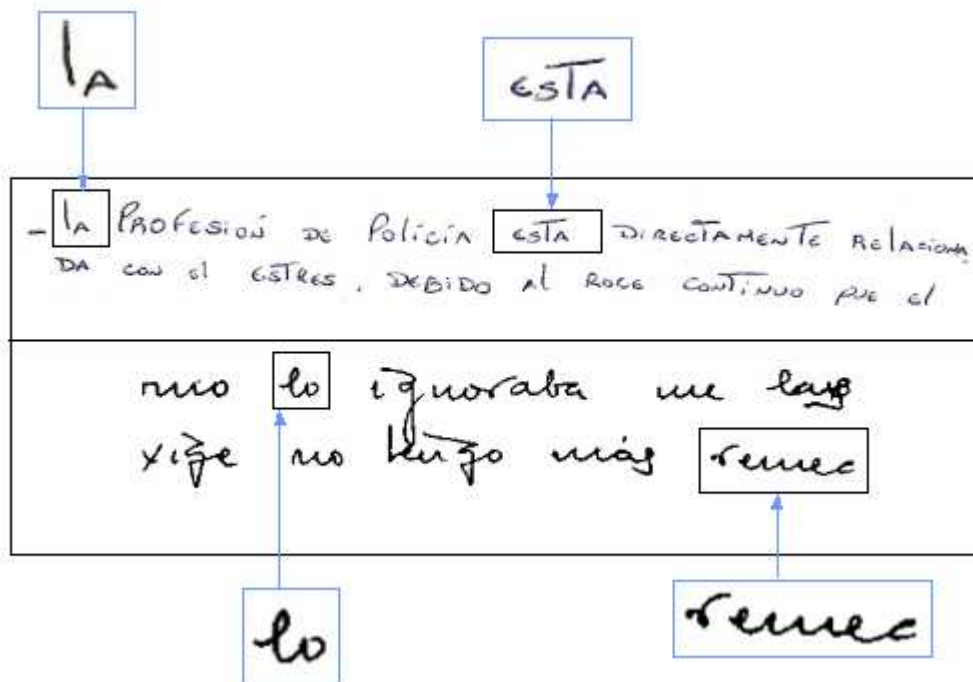 lA ESTA
- lA PROFESIÓN DE POLICÍA ESTA DIRECTAMENTE RELACIONA
DA CON El ESTRES, DEBIDO Al ROCE CONTÍNUO QUE El
mo lo ignoraba me
xige no tengo más remec
lo remec